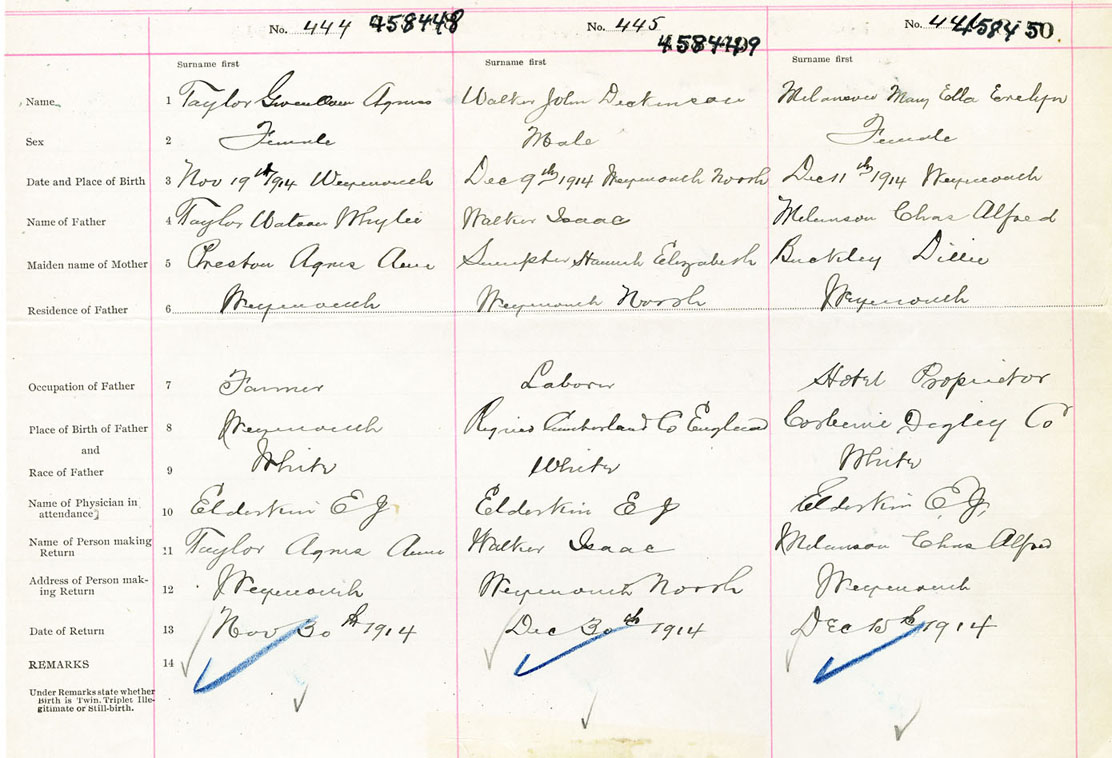 No. 444 458448 No. 445 458449 No. 458450
Surname first Surname first Surname first
Name 1 Taylor Gwendolen Agnes Walker John Dickinson Melanson Mary Ella Evelyn
Sex 2 Female Male Female
Date and Place of Birth 3 Nov 19th 1914 Weymouth Dec 9th 1914 Weymouth North Dec 11th 1914 Weymouth
Name of Father 4 Taylor Watson Whylie Walker Isaac Melanson Chas Alfred
Maiden name of Mother 5 Preston Agnes Anne Sumpter Hannah Elizabeth Buckley Dillie
Residence of Father 6 Weymouth Weymouth North Weymouth
Occupation of Father 7 Farmer Laborer Hotel Proprietor
Place of Birth of Father 8 Weymouth Cumberland Co England Corberrie Digby Co
and
Race of Father 9 White White White
Name of Physician in
attendance 10 Elderkin E J Elderkin E J Elderkin E J.
Name of Person making
Return 11 Taylor Agnes Anne Walker Isaac Melanson Chas Alfred
Address of Person mak-
ing Return 12 Weymouth Weymouth North Weymouth
Date of Return 13 Nov 30th 1914 Dec 30th 1914 Dec 15th 1914
REMARKS 14
Under Remarks state whether
Birth is Twin, Triplet Ille-
gitimate or Still-birth.